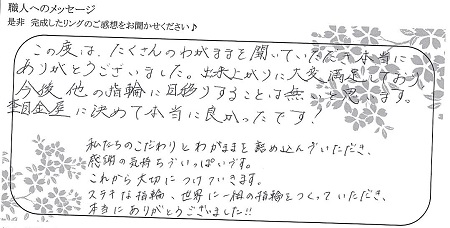 職人へのメッセージ
是非 完成したリングのご感想をお聞かせください♪
この度は、たくさんのわがままを聞いていただいて本当に
ありがとうございました。出来上がりに大変満足しており
今後、他の指輪に目移りすることは無いと思います。
杢目金屋に決めて本当に良かったです!
私たちのこだわりとわがままを詰め込んでいただき、
感謝の気持ちでいっぱいです。
これから大切につけていきます。
ステキな指輪、世界に一組の指輪をつくっていただき、
本当にありがとうございました!!